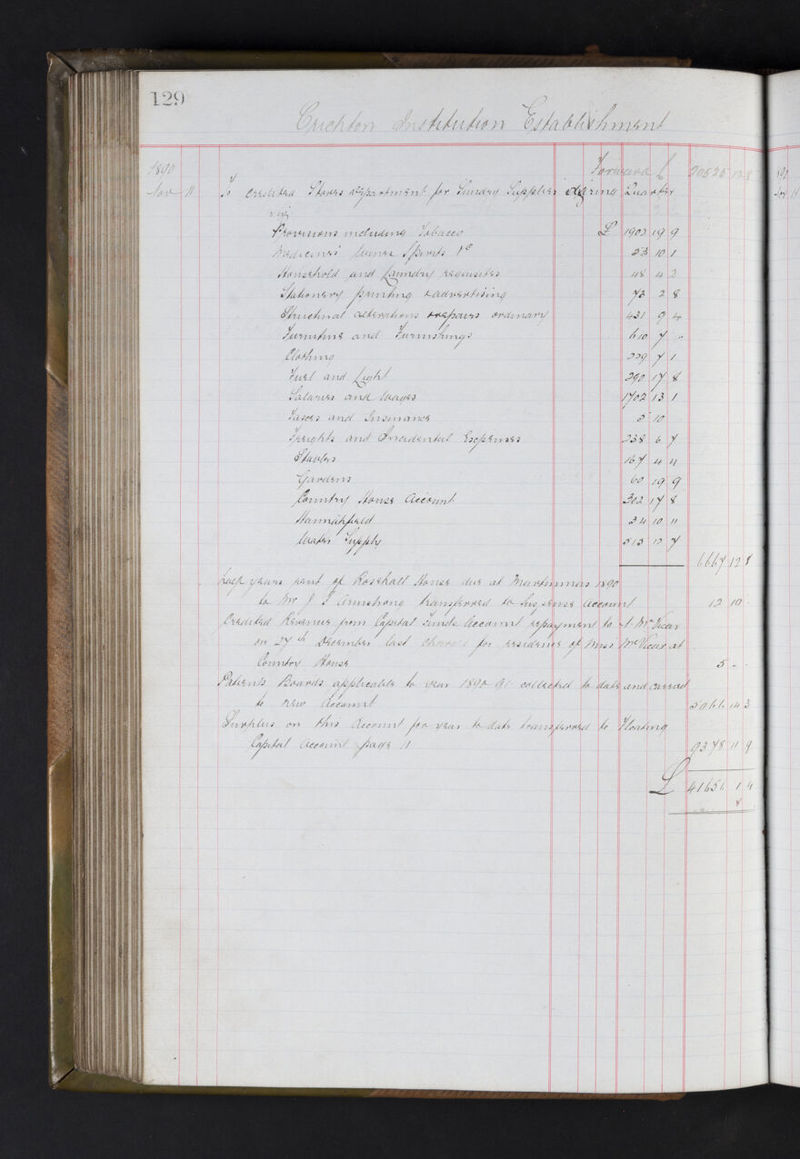 129
Crichton Institution Establishment
1890 Forward £ 20526 12 8
Nov 11 To credited Stores department for Sundry Supplies during Quarter
viz
Provisions including Tobacco £ 1902 19 9
Medicines Wines Spirits &c 23 10 1
Household and Laundry requisites 48 4 2
Stationery printing & advertising 73 2 8
Structural alterations & repairs ordinary 431 9 4
Furniture and Furnishings 610 7 -
Clothing 229 7 1
Fuel and Light 290 17 8
Salaries and Wages 1702 13 1
Taxes and Insurance 5 10
Freights and Incidental Expenses 238 6 7
Stables 167 4 11
Gardens 60 19 9
Country House Account 302 17 8
Hannahfield 34 10 11
Water Supply 513 17 7
6667 12 8
half years rent of Rosehall House due at Martinmas 1890
to Mr J Armstrong transferred to his account 12 10 -
Credited Revenue from Capital Funds Account repayment to Mr McVicar
on 27th December last for residence of Miss McVicar at
Country House 5 - -
Patients Boards applicable to year 1890-91 collected to date and carried
to new Account 5066 14 3
Surplus on this Account for year to date transferred to Floating
Capital Account page 11 9378 11 9
£ 41656 1 4